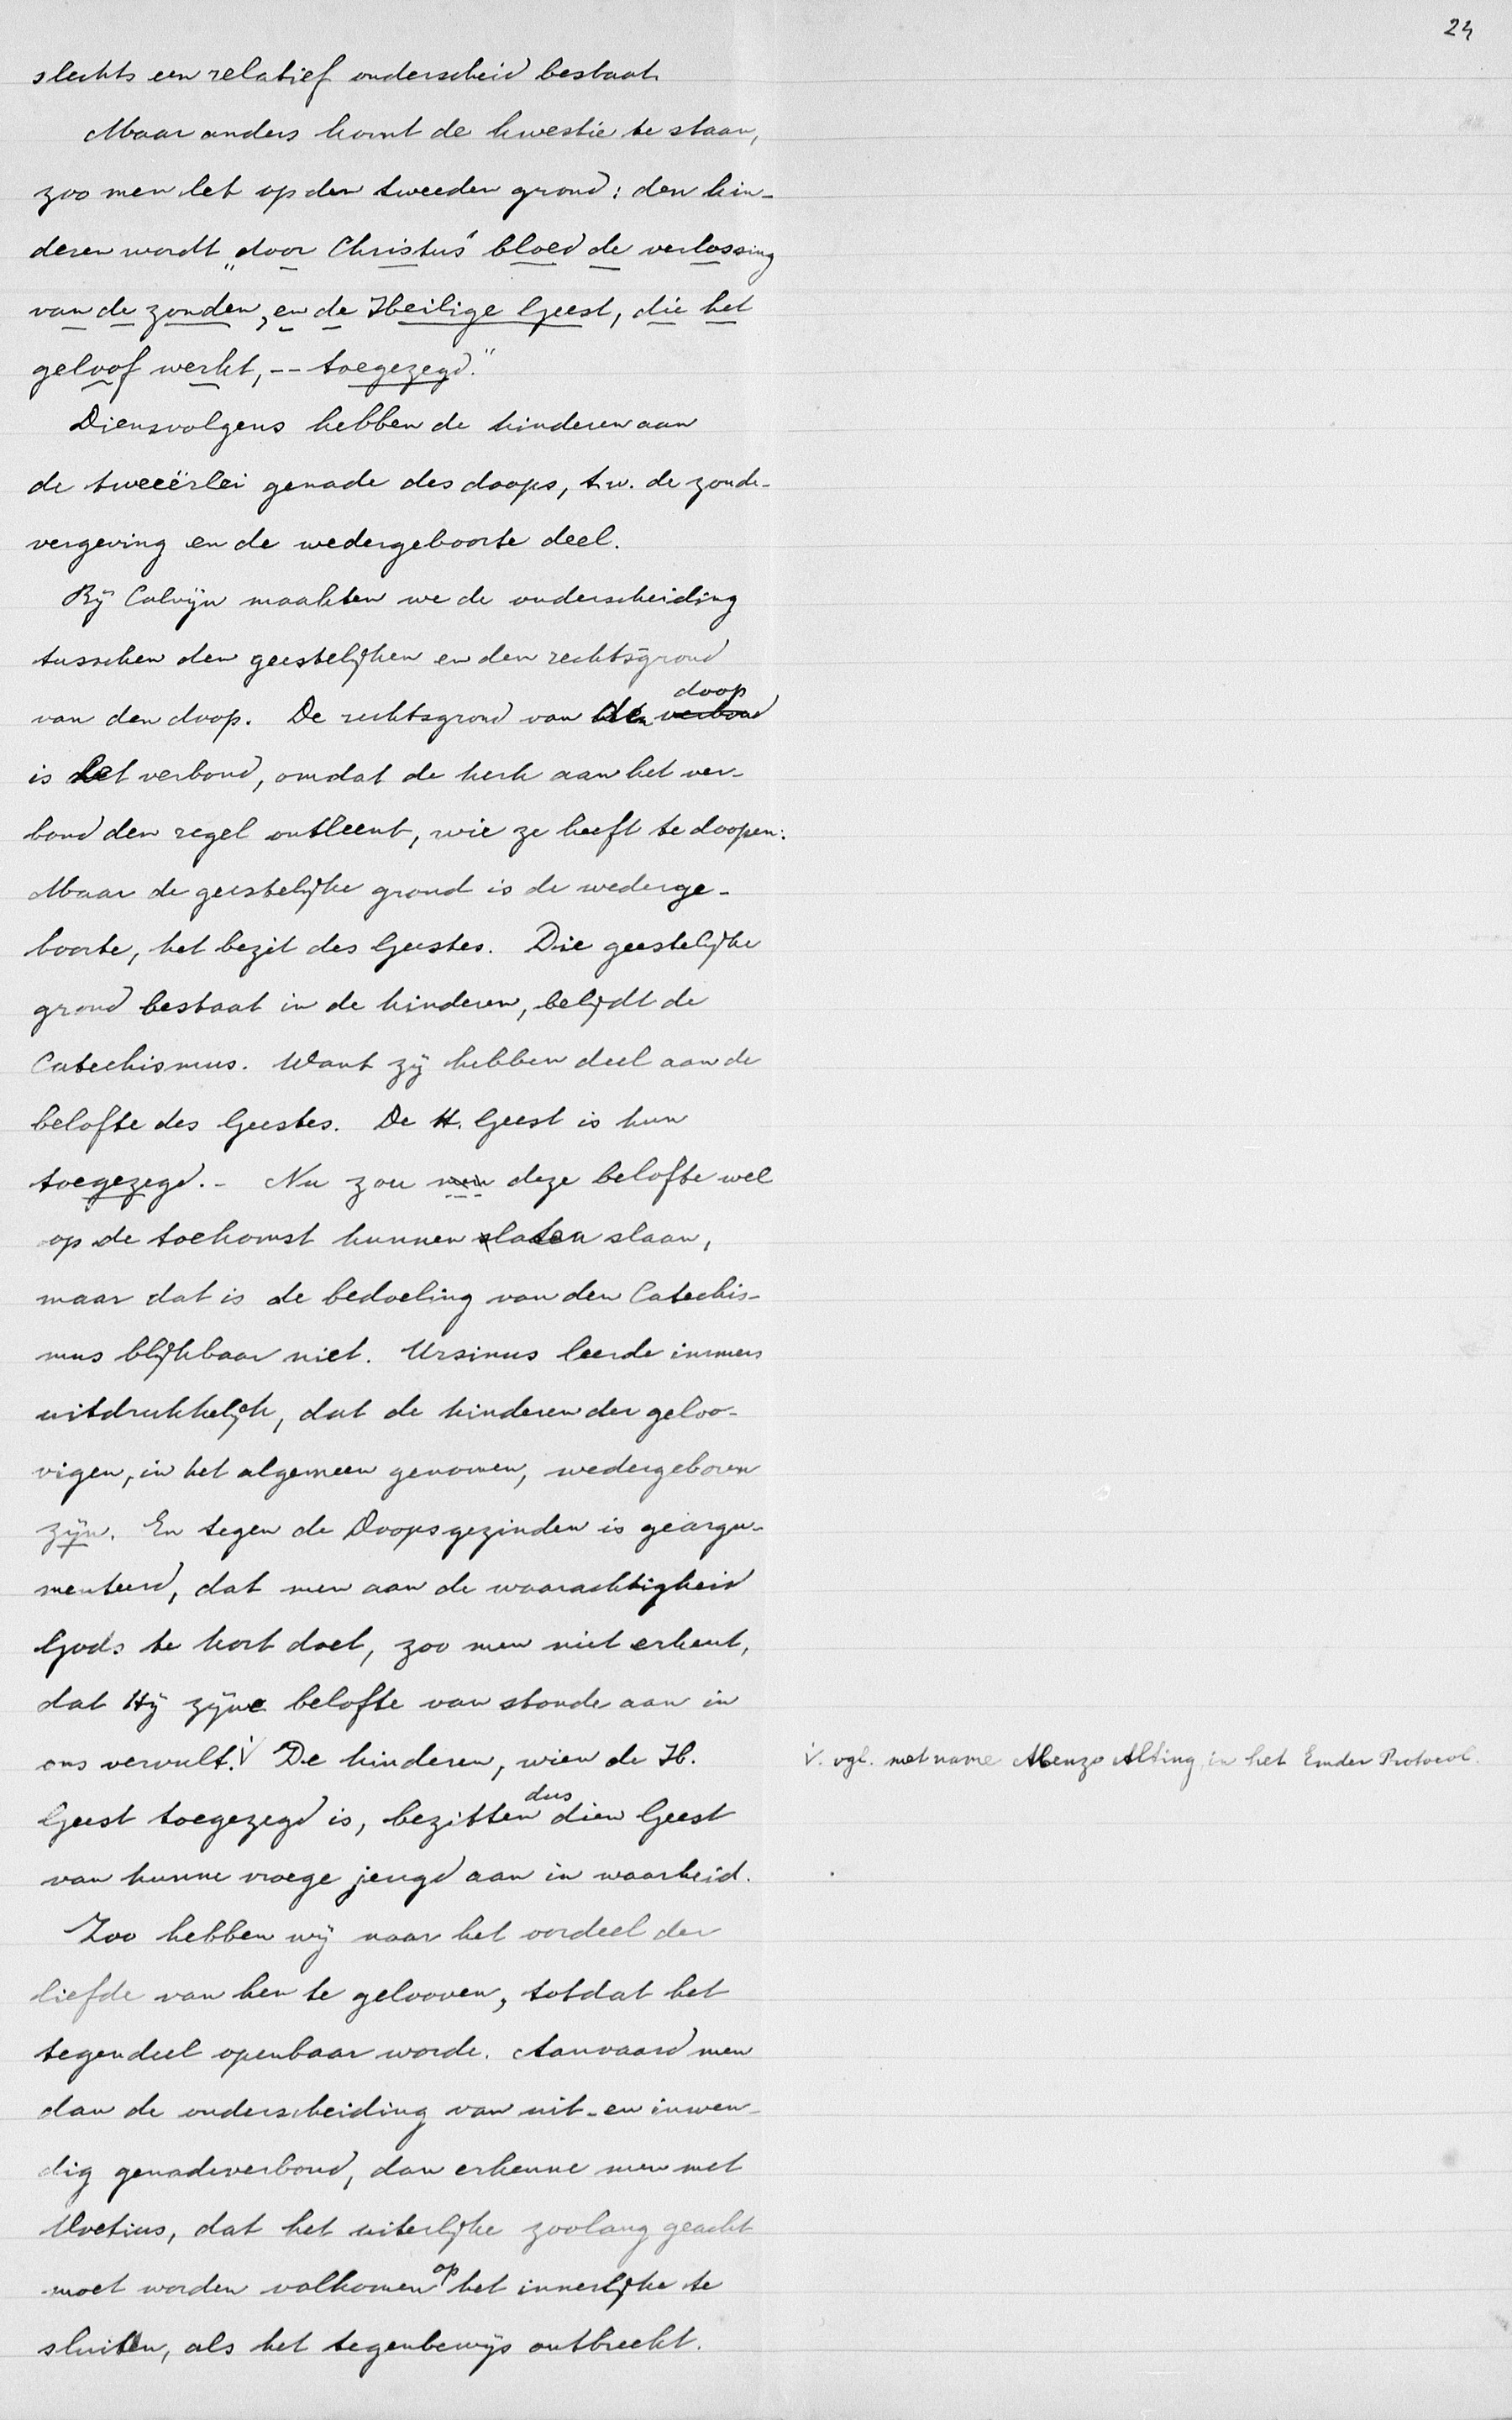 24
slechts een relatief onderscheid bestaat.
Maar anders komt de kwestie te staan,
zoo men let op den tweeden grond: den kin-
deren wordt „door Christus' bloed de verlossing
van de zonden, en de Heilige Geest, die het
geloof werkt, -- toegezegd."
Diensvolgens hebben de kinderen aan
de tweeërlei genade des doops, t.w. de zonde-
vergeving en de wedergeboorte deel.
Bij Calvijn maakten we de onderscheiding
tusschen den geestelijken en den rechtsgrond
van den doop. De rechtsgrond van den verbond doop
is het verbond, omdat de kerk aan het ver-
bond den regel ontleent, wie ze heeft te doopen.
Maar de geestelijke grond is de wederge-
boorte, het bezit des Geestes. Die geestelijke
grond bestaat in de kinderen, belijdt de
Catechismus. Want zij hebben deel aan de
belofte des Geestes. De H. Geest is hun
toegezegd. - Nu zou men deze belofte wel
op de toekomst kunnen laten slaan,
maar dat is de bedoeling van den Catechis-
mus blijkbaar niet. Ursinus leerde immers
uitdrukkelijk, dat de kinderen der geloo-
vigen, in het algemeen genomen, wedergeboren
zijn. En tegen de Doopsgezinden is geargu-
menteerd, dat men aan de waarachtigheid
Gods te kort doet, zoo men niet erkent,
dat Hij zijne belofte van stonde aan in
ons vervult. √ De kinderen, wien de H.
√. vgl. met name Menzo Alting in het Emder Protocol.
Geest toegezegd is, bezitten dus dien Geest
van hunne vroege jeugd aan in waarheid.
Zoo hebben wij naar het oordeel der
liefde van hen te gelooven, totdat het
tegendeel openbaar worde. Aanvaard men
dan de onderscheiding van uit- en inwen-
dig genadeverbond, dan erkenne men met
Voetius, dat het uiterlijke zoolang geacht
moet worden volkomen op het innerlijke te
sluiten, als het tegenbewijs ontbreekt.